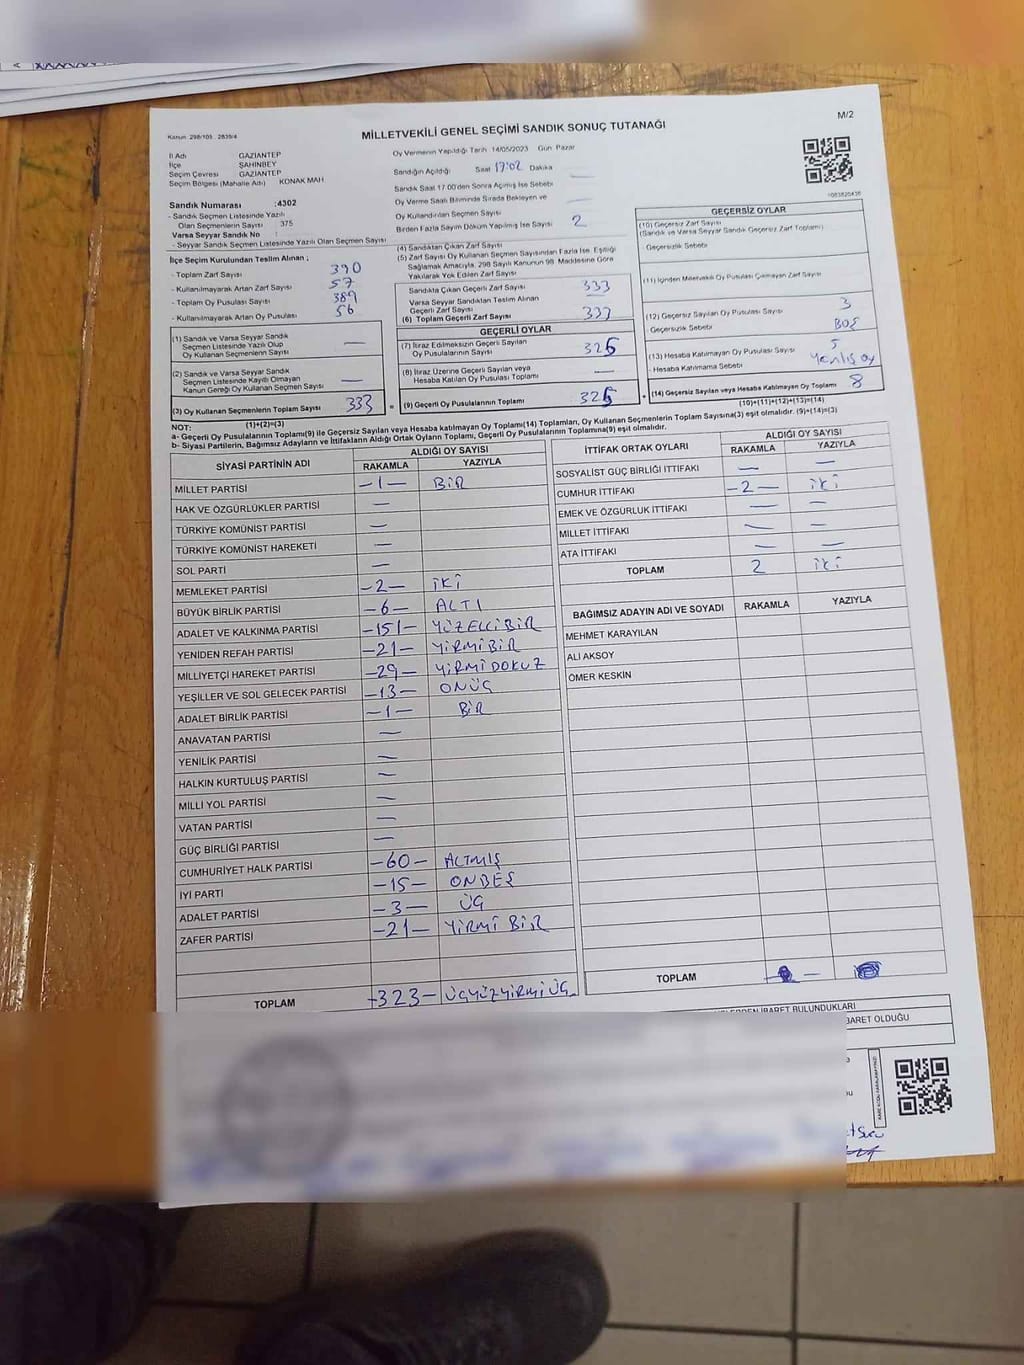 M/2
Kanun 298/105 2839/4
MİLLETVEKİLİ GENEL SEÇİMİ SANDIK SONUÇ TUTANAĞI
İl Adı GAZİANTEP
İlçe ŞAHİNBEY
Seçim Çevresi GAZİANTEP
Seçim Bölgesi (Mahalle Adı) KONAK MAH
Sandık Numarası :4302
- Sandık Seçmen Listesinde Yazılı
Olan Seçmenlerin Sayısı 375
Varsa Seyyar Sandık No :
- Seyyar Sandık Seçmen Listesinde Yazılı Olan Seçmen Sayısı
Oy Vermenin Yapıldığı Tarih 14/05/2023 Gün Pazar
Sandığın Açıldığı Saat 17:02 Dakika
Sandık Saat 17 00'den Sonra Açılmış İse Sebebi —
Oy Verme Saati Bitiminde Sırada Bekleyen ve
Oy Kullandırılan Seçmen Sayısı —
Birden Fazla Sayım Döküm Yapılmış İse Sayısı 2
1083820436
İlçe Seçim Kurulundan Teslim Alınan ;
- Toplam Zarf Sayısı 390
- Kullanılmayarak Artan Zarf Sayısı 57
- Toplam Oy Pusulası Sayısı 389
- Kullanılmayarak Artan Oy Pusulası 56
(1) Sandık ve Varsa Seyyar Sandık
Seçmen Listesinde Yazılı Olup
Oy Kullanan Seçmenlerin Sayısı —
(2) Sandık ve Varsa Seyyar Sandık
Seçmen Listesinde Kayıtlı Olmayan
Kanun Gereği Oy Kullanan Seçmen Sayısı —
(3) Oy Kullanan Seçmenlerin Toplam Sayısı 333
(1)+(2)=(3)
(4) Sandıktan Çıkan Zarf Sayısı
(5) Zarf Sayısı Oy Kullanan Seçmen Sayısından Fazla İse, Eşitliği
Sağlamak Amacıyla, 298 Sayılı Kanunun 98. Maddesine Göre
Yakılarak Yok Edilen Zarf Sayısı
Sandıkta Çıkan Geçerli Zarf Sayısı 333
Varsa Seyyar Sandıktan Teslim Alınan
Geçerli Zarf Sayısı —
(6) Toplam Geçerli Zarf Sayısı 333
GEÇERLİ OYLAR
(7) İtiraz Edilmeksizin Geçerli Sayılan
Oy Pusulalarının Sayısı 325
(8) İtiraz Üzerine Geçerli Sayılan veya
Hesaba Katılan Oy Pusulası Toplamı —
(9) Geçerli Oy Pusulalarının Toplamı 325
GEÇERSİZ OYLAR
(10) Geçersiz Zarf Sayısı
(Sandık ve Varsa Seyyar Sandık Geçersiz Zarf Toplamı)
Geçersizlik Sebebi
(11) İçinden Milletvekili Oy Pusulası Çıkmayan Zarf Sayısı
(12) Geçersiz Sayılan Oy Pusulası Sayısı 3
Geçersizlik Sebebi BOŞ
(13) Hesaba Katılmayan Oy Pusulası Sayısı 5
- Hesaba Katılmama Sebebi yanlış oy
(14) Geçersiz Sayılan veya Hesaba Katılmayan Oy Toplamı 8
(10)+(11)+(12)+(13)=(14)
NOT:
a- Geçerli Oy Pusulalarının Toplamı(9) ile Geçersiz Sayılan veya Hesaba katılmayan Oy Toplamı(14) Toplamları, Oy Kullanan Seçmenlerin Toplam Sayısına(3) eşit olmalıdır. (9)+(14)=(3)
b- Siyasi Partilerin, Bağımsız Adayların ve İttifakların Aldığı Ortak Oyların Toplamı, Geçerli Oy Pusulalarının Toplamına(9) eşit olmalıdır.
SİYASİ PARTİNİN ADI ALDIĞI OY SAYISI
RAKAMLA YAZIYLA
MİLLET PARTİSİ -1- BİR
HAK VE ÖZGÜRLÜKLER PARTİSİ —
TÜRKİYE KOMÜNİST PARTİSİ —
TÜRKİYE KOMÜNİST HAREKETİ —
SOL PARTİ —
MEMLEKET PARTİSİ -2- İKİ
BÜYÜK BİRLİK PARTİSİ -6- ALTI
ADALET VE KALKINMA PARTİSİ -151- YÜZELLİBİR
YENİDEN REFAH PARTİSİ -21- YİRMİBİR
MİLLİYETÇİ HAREKET PARTİSİ -29- YİRMİDOKUZ
YEŞİLLER VE SOL GELECEK PARTİSİ -13- ONÜÇ
ADALET BİRLİK PARTİSİ -1- BİR
ANAVATAN PARTİSİ —
YENİLİK PARTİSİ —
HALKIN KURTULUŞ PARTİSİ —
MİLLİ YOL PARTİSİ —
VATAN PARTİSİ —
GÜÇ BİRLİĞİ PARTİSİ —
CUMHURİYET HALK PARTİSİ -60- ALTMIŞ
İYİ PARTİ -15- ONBEŞ
ADALET PARTİSİ -3- ÜÇ
ZAFER PARTİSİ -21- YİRMİ BİR
TOPLAM -323- ÜÇYÜZYİRMİÜÇ
İTTİFAK ORTAK OYLARI ALDIĞI OY SAYISI
RAKAMLA YAZIYLA
SOSYALİST GÜÇ BİRLİĞİ İTTİFAKI — —
CUMHUR İTTİFAKI -2- İKİ
EMEK VE ÖZGÜRLÜK İTTİFAKI — —
MİLLET İTTİFAKI — —
ATA İTTİFAKI — —
TOPLAM 2 İKİ
BAĞIMSIZ ADAYIN ADI VE SOYADI RAKAMLA YAZIYLA
MEHMET KARAYILAN
ALİ AKSOY
ÖMER KESKİN
TOPLAM —
İBARET BULUNDUKLARI
İBARET OLDUĞU